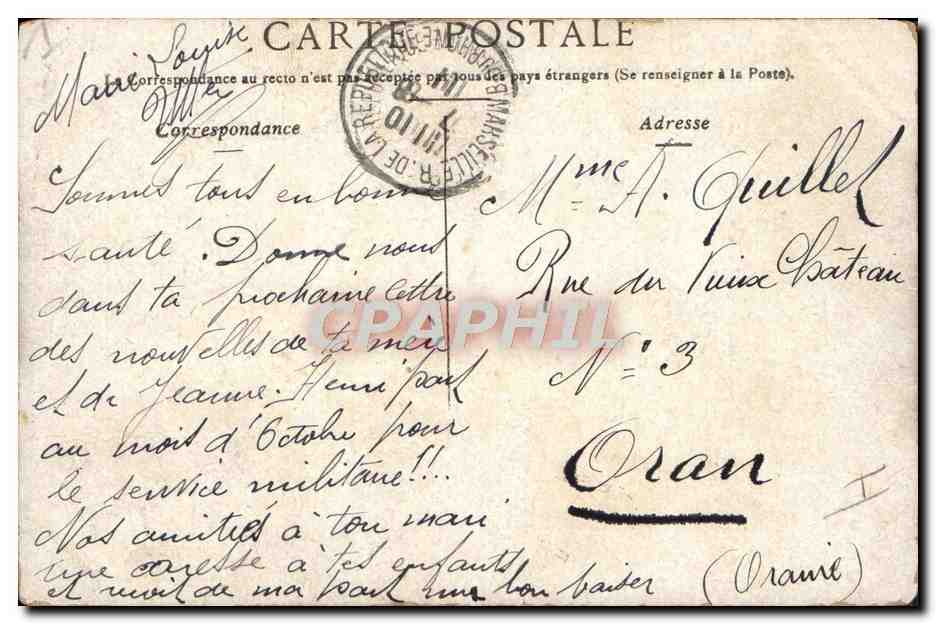 CARTE POSTALE
La Correspondance au recto n'est pas acceptée par tous les pays étrangers (Se renseigner à la Poste).
Marie Louise
Correspondance
Sommes tous en bonne
santé. Donne nous
dans ta prochaine lettre
des nouvelles de ta mère
et de Jeanne. Henri part
au mois d'Octobre pour
le service militaire!!..
Nos amitiés à ton mari
une caresse à tes enfants
et reçoit de ma part un bon baiser
Adresse
Mme A. Quillet
Rue du Vieux Château
N° 3
Oran
(Oranie)
I
MARSEILLE R. DE LA REPUBLIQUE
CPAPHIL